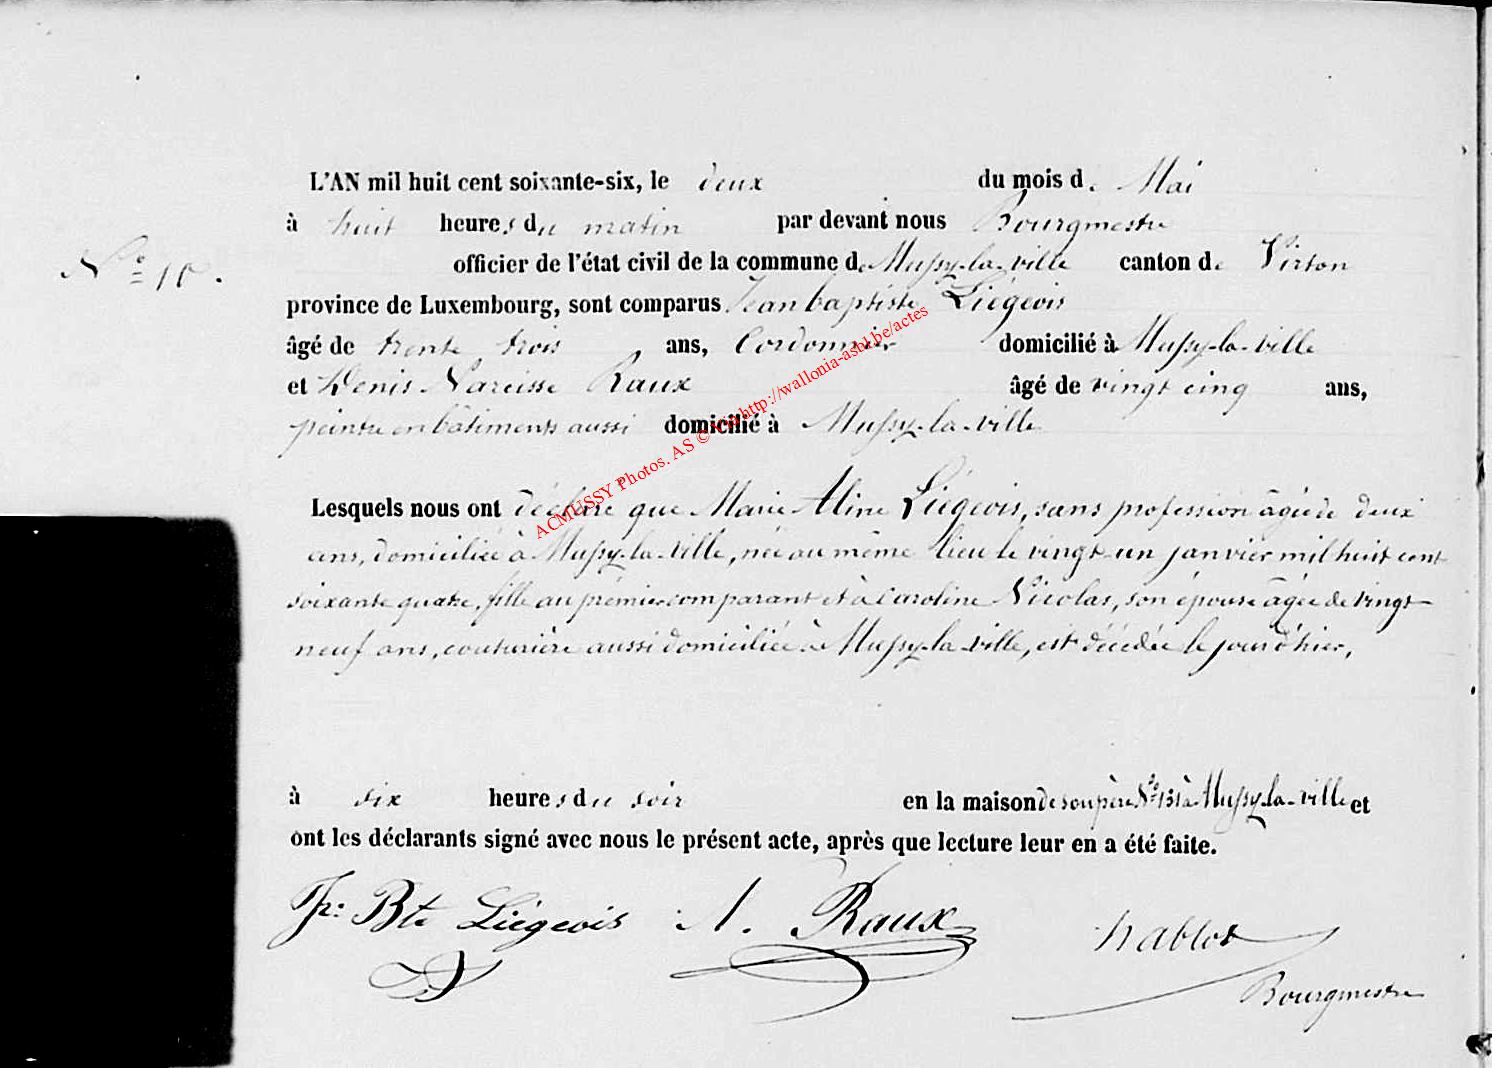 L'AN mil huit cent soixante-six, le deux du mois de Mai
à huit heures du matin par devant nous Bourgmestre
Nº 10.
officier de l'état civil de la commune de Mussy-la-ville canton de Virton
province de Luxembourg, sont comparus Jean baptiste Liégeois
âgé de trente trois ans, Cordonnier domicilié à Mussy-la-ville
et Denis Narcisse Raux âgé de vingt cinq ans,
peintre en bâtiments aussi domicilié à Mussy-la-ville
Lesquels nous ont déclaré que Marie Aline Liégeois, sans profession âgée de deux
ans, domiciliée à Mussy-la-ville, née au même lieu le vingt-un janvier mil huit cent
soixante quatre, fille au prémier comparant et à Caroline Nicolas, son épouse âgée de vingt
neuf ans, couturière aussi domiciliée à Mussy-la-ville, est décédée le jour d'hier,
à six heures du soir en la maison de son père Nº 131 à Mussy-la-ville et
ont les déclarants signé avec nous le présent acte, après que lecture leur en a été faite.
Jn: Bte Liégeois N. Raux
hablot
Bourgmestre
ACMUSSY Photos. AS © http://wallonia-asbl.be/actes